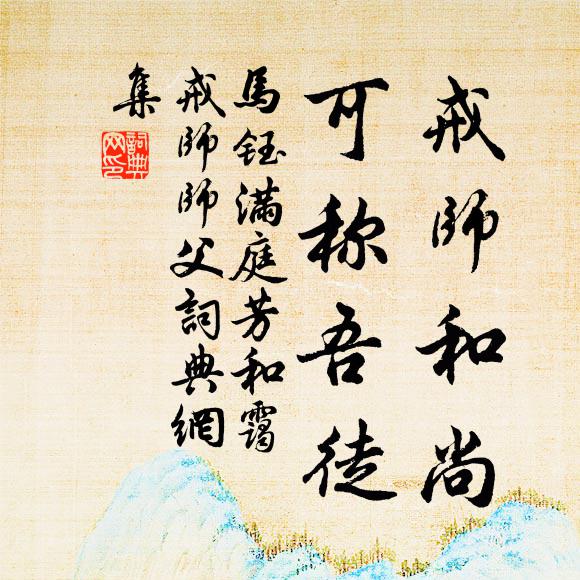 戒師和尚
可称吾徒
馬鈺滿庭芳和靄
戒師師父詞典網
集
詞典
网印